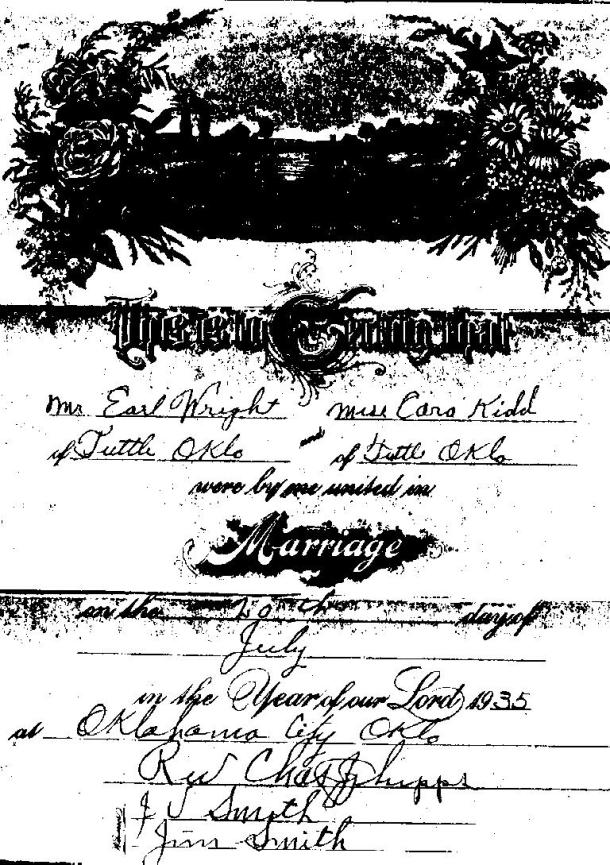 This is to Certify that
Mr Earl Wright Miss Cara Kidd
and
of Tuttle Okla of Tuttle Okla
were by me united in
Marriage
on the 20th day of
July
in the Year of our Lord 1935
at Oklahoma City Okla
Rev Chas J Phipps
J J Smith
Jim Smith